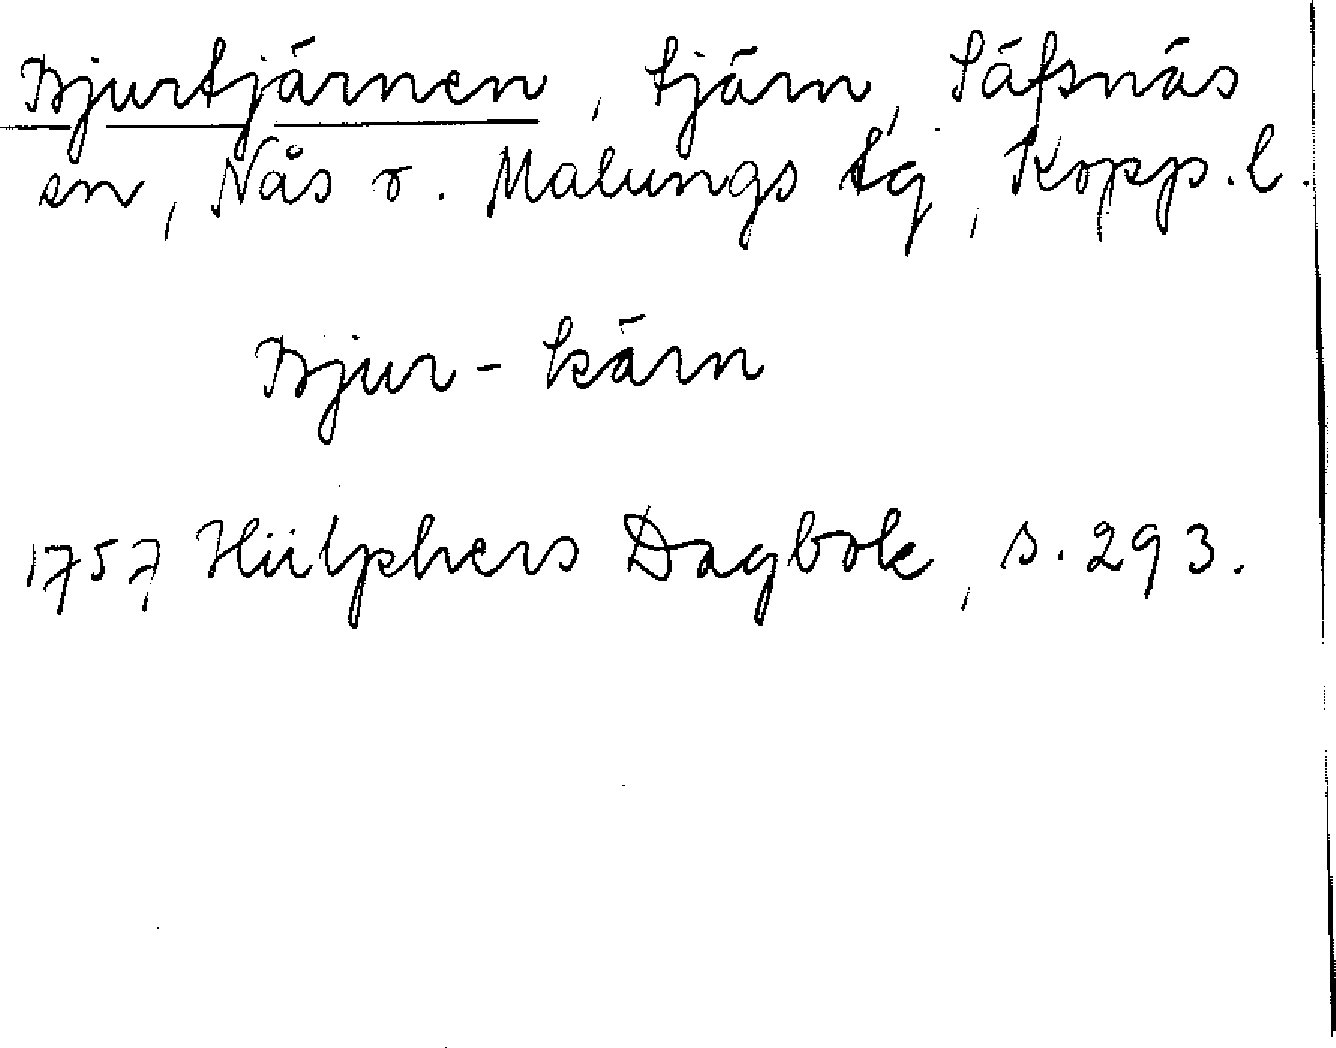 Bjurtjärnen, tjärn, Säfsnäs
sn, Nås o. Malungs tg, Kopp. l.
Bjur-kärn
1757 Hülphers Dagbok, s. 293.